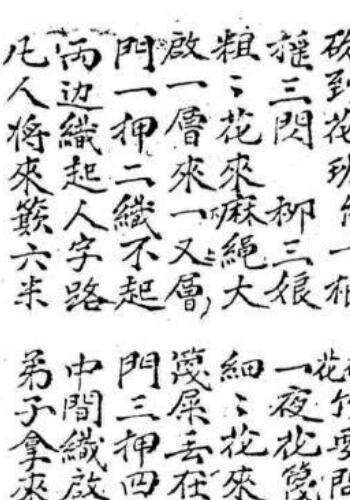 到花 一
搖三閃 柳三娘 一夜花
粗〻花來麻繩大 細〻花來
啟一層來一又層 篾屎去在
門一押二織不起 門三押四
両边織起人字路 中間織啟
凡人將來簸六米 弟子拿來